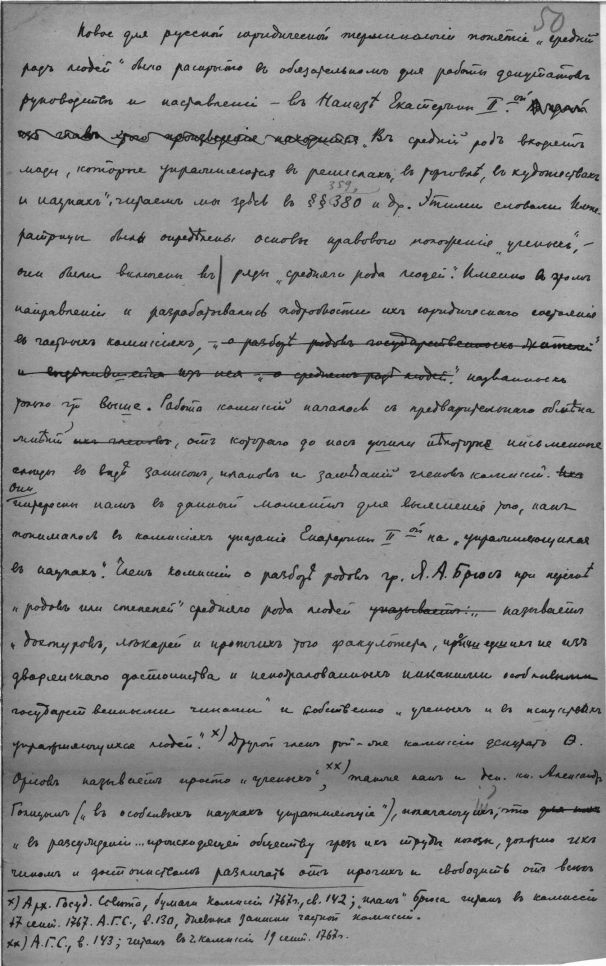 50
Новое для русской юридической терминологiи понятiе „среднiй
родъ людей" было раскрыто въ обязательномъ для работы депутатовъ
руководствѣ и наставленiи – въ Наказѣ Екатерины II-ой.
Въ среднiй родъ входятъ
люди, которые упражняются въ ремеслахъ, въ торговлѣ, въ художествахъ
359,
и наукахъ", читаемъ мы здѣсь въ §§ 380 и др. Этими словами Импе-
ратрицы были опредѣлены основы правового положенiя „ученыхъ", –
они были включены въ ряды „средняго рода людей". Именно въ этомъ
направленiи и разрабатывались подробности ихъ юридическаго состоянiя
въ частныхъ комиссiяхъ, – „о разборѣ родовъ государственныхъ жителей"
и изъ нея – „о среднемъ родѣ людей". названныхъ
только что выше. Работа комиссiй началась съ предварительнаго обмѣна
мнѣнiй ихъ членовъ, отъ котораго до насъ дошли нѣкоторые письменные
слѣды въ видѣ записокъ, плановъ и замѣчанiй членовъ комиссiй. ихъ
Они
интересны намъ въ данный моментъ для выясненiя того, какъ
понималось въ комиссiяхъ указанiе Екатерины II-ой на „упражняющихся
въ наукахъ". Членъ комиссiи о разборѣ родовъ гр. Я. А. Брюсъ при
„родовъ или степеней" средняго рода людей указываетъ: называетъ
„докторовъ, лѣкарей и протчихъ того факультета, не изъ
дворянскаго достоинства и непожалованныхъ никакими особливыми
государственными чинами" и собственно „ученыхъ и въ искуствахъ
упражняющихся людей". х) Другой членъ той-же комиссiи депутатъ Ѳ.
Орловъ называетъ просто „ученыхъ", хх) также какъ и деп. кн. Александръ
Голицынъ („въ особливыхъ наукахъ упражняющiе"), полагающiй, что для нихъ
„въ разсужденiи... происходящей обществу чрезъ ихъ труды пользы, должно ихъ
чиномъ и достоинствомъ различать отъ прочихъ и свободить отъ всѣхъ
х) Арх. Госуд. Совѣта, бумаги комиссiи 1767 г., св. 142; „планъ" Брюса читанъ въ комиссiи
17 сент. 1767. А.Г.С., в. 130, дневныя записки частной комиссiи.
хх) А.Г.С., в. 143; читанъ въ ч. комиссiи 19 сент. 1767 г.